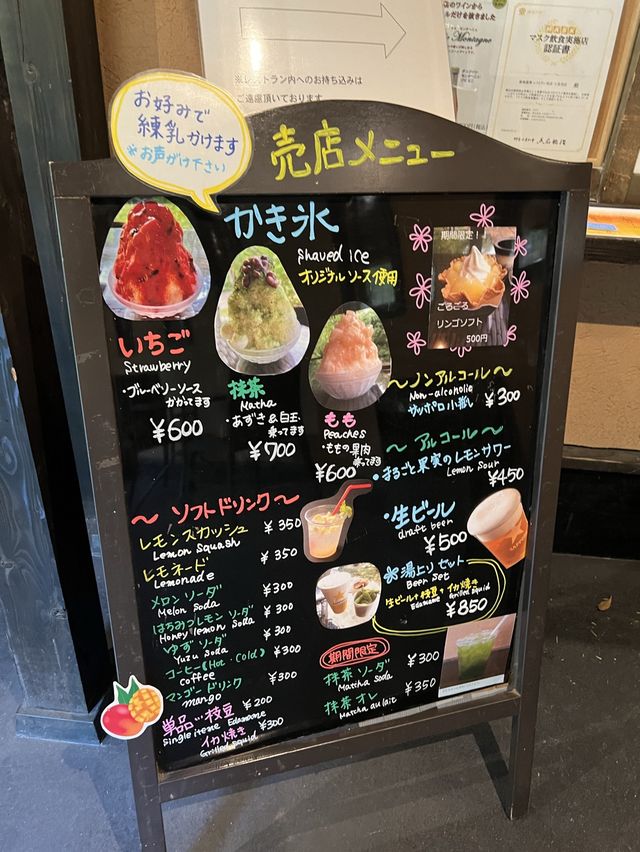 ※レストラン内へのお持ち込みは
ご遠慮頂いております
マスク飲食実施店
認証書
お好みで
練乳かけます
※お声がけ下さい
売店メニュー
かき氷
Shaved ice
オリジナルソース使用
いちご
Strawberry
・ブルーベリーソース
かかってます
¥600
抹茶
Matha
・あずき&白玉
乗ってます
¥700
もも
Peaches
・ももの果肉
乗ってます
¥600
期間限定!
ごろごろ
リンゴソフト
500円
〜ノンアルコール〜
Non-alcoholic
サッポロ小瓶 ¥300
〜アルコール〜
・まるごと果実のレモンサワー
Lemon Sour
¥450
・生ビール
draft beer
¥500
湯上りセット
Beer Set
生ビール+枝豆+イカ焼き
Edamame Grilled squid
¥850
〜ソフトドリンク〜
レモンスカッシュ ¥350
Lemon Squash
レモネード ¥350
Lemonade
メロンソーダ ¥300
Melon Soda
はちみつレモンソーダ ¥300
Honey lemon Soda
ゆずソーダ ¥300
Yuzu Soda
コーヒー(Hot・Cold) ¥300
coffee
マンゴードリンク ¥300
mango
単品…枝豆 ¥200
Single items Edamame
イカ焼き ¥300
Grilled squid
期間限定
抹茶ソーダ ¥300
Matcha Soda
抹茶オレ ¥350
Matcha au lait